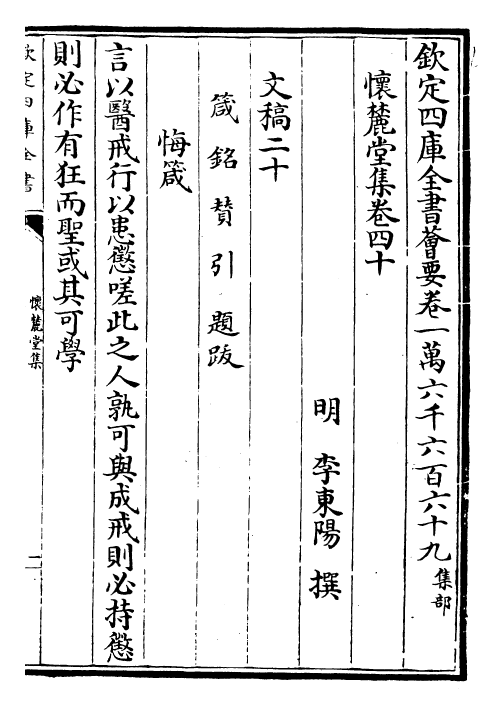 欽定四庫全書薈要卷一萬六千六百六十九集部
懷麓堂集卷四十
明 李東陽 撰
文稿二十
箴 銘 賛 引 題跋
悔箴
言以醫戒行以患懲嗟此之人孰可與成戒則必持懲
則必作有狂而聖或其可學
欽定四庫全書
懷麓堂集